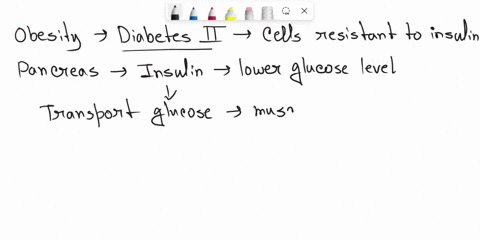 Obesity → Diabetes II → Cells resistant to insulin
Pancreas → Insulin → lower glucose level
↓
Transport glucose → mus